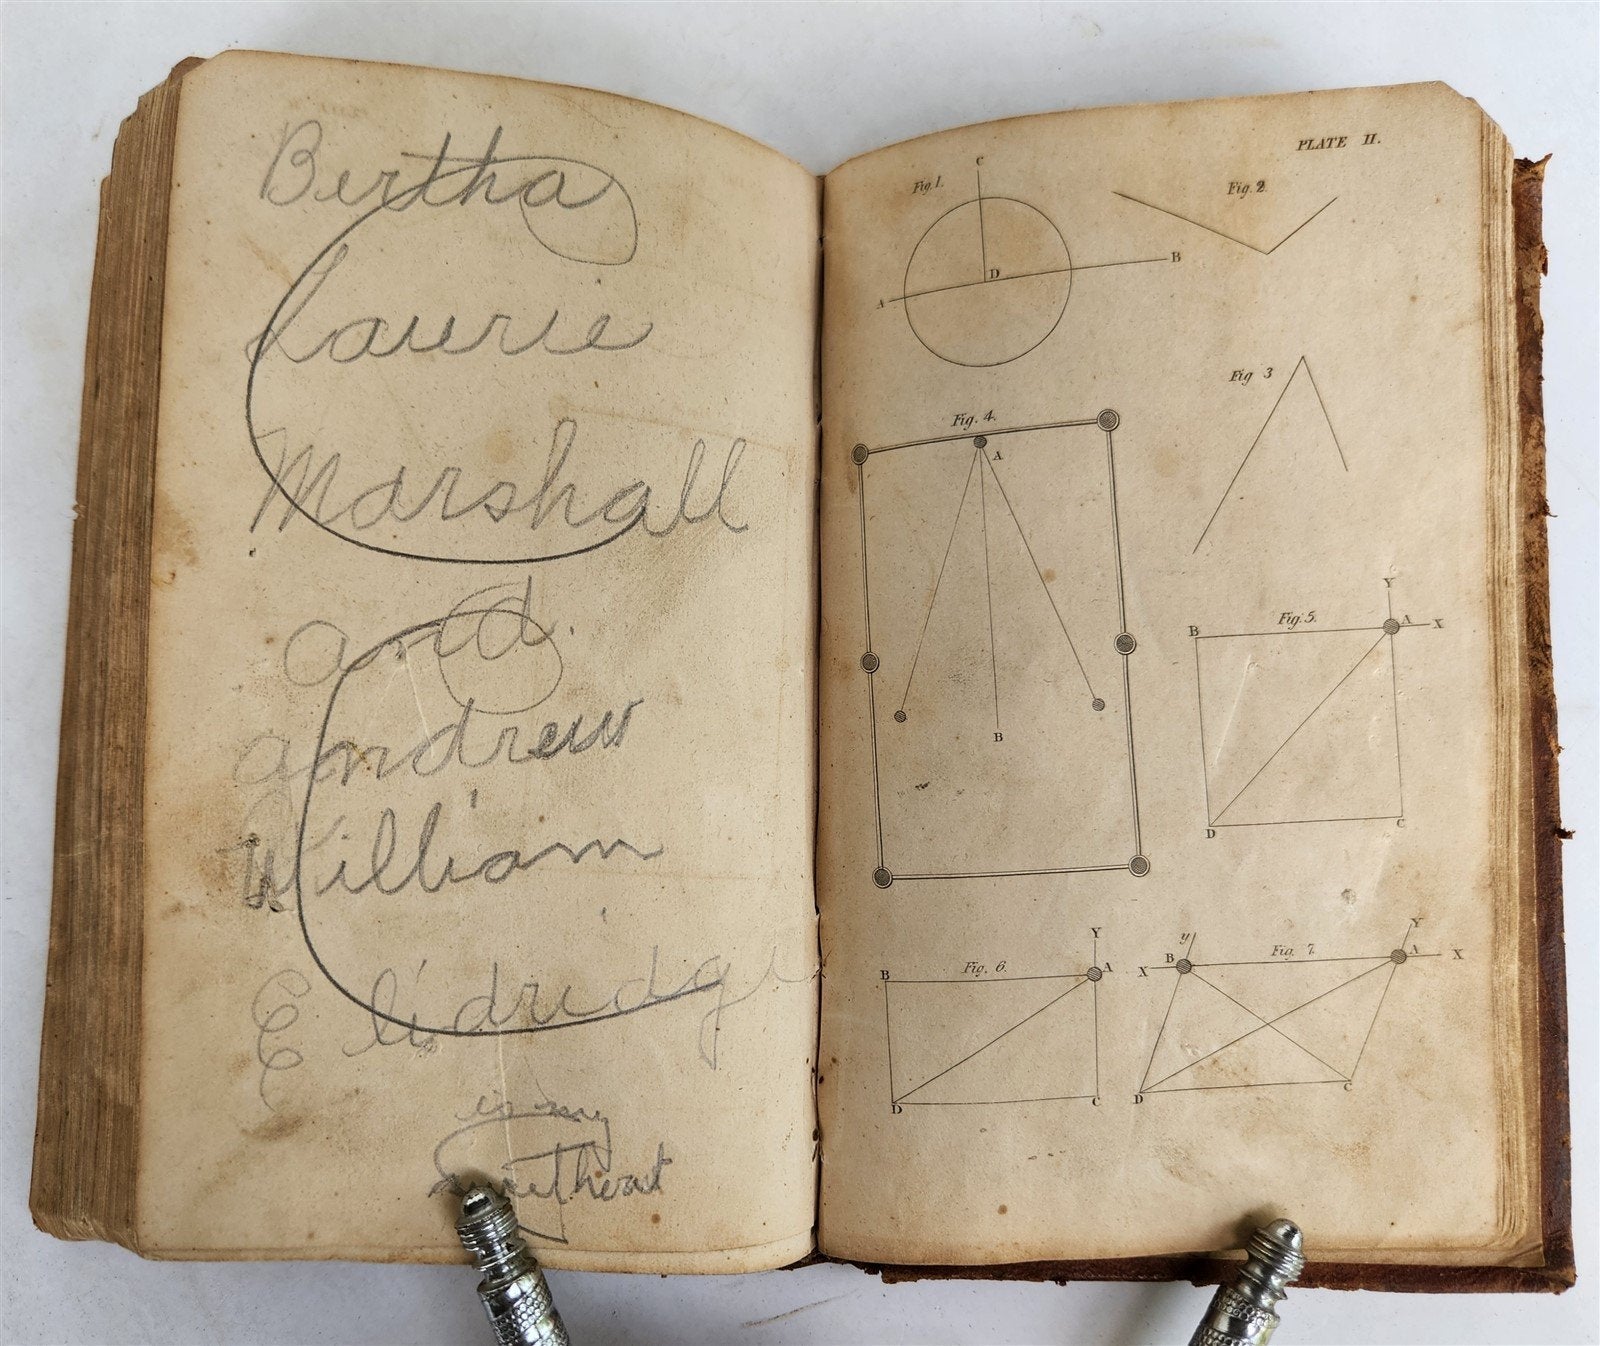 Bertha
Laurie
Marshall
and
Andrew
William
Elidridge
is my
Sweetheart
PLATE II.
Fig. 1.
C
D
A
B
Fig. 2
Fig 3
Fig. 4.
A
B
Fig. 5.
Y
B
A
X
D
C
Fig. 6.
Y
B
A
D
C
Fig. 7.
y
Y
X
B
A
X
D
C